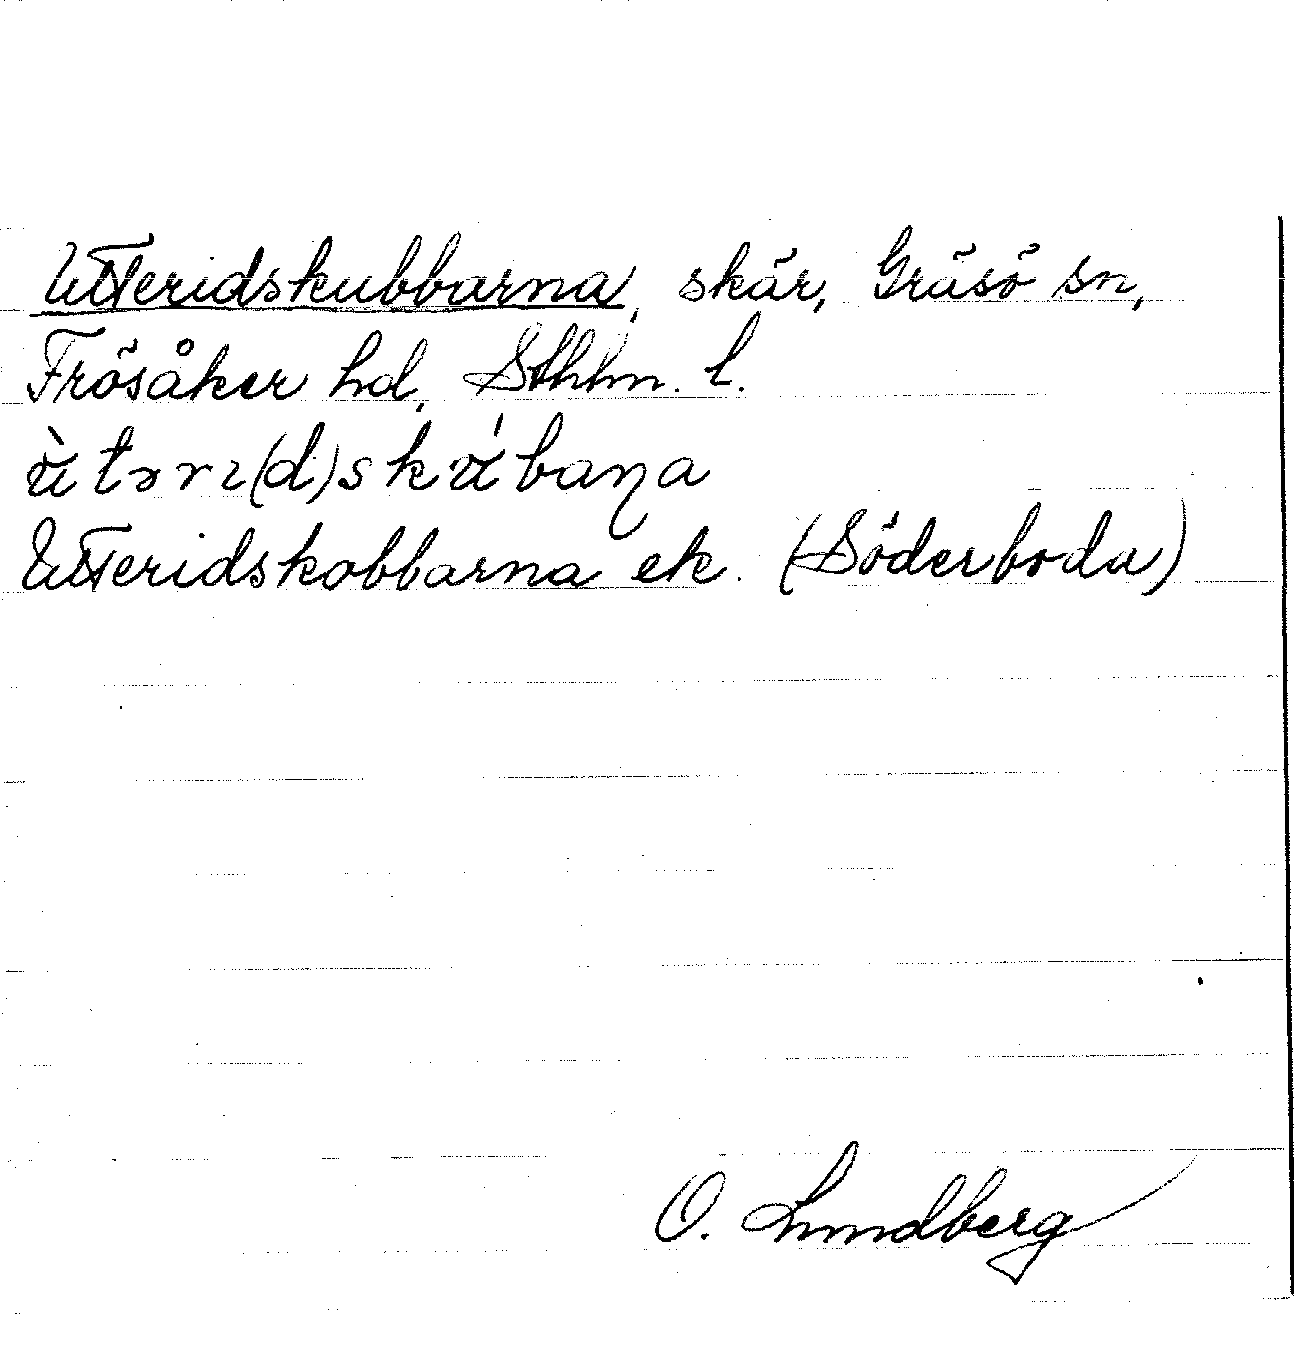 Utteridskubbarna, skär, Gräsö sn,
Frösåker hd, Sthlm. l.
ὰtərɪ(d)skα´baɳa
Utteridskobbarna ek. (Söderboda)
O. Lundberg